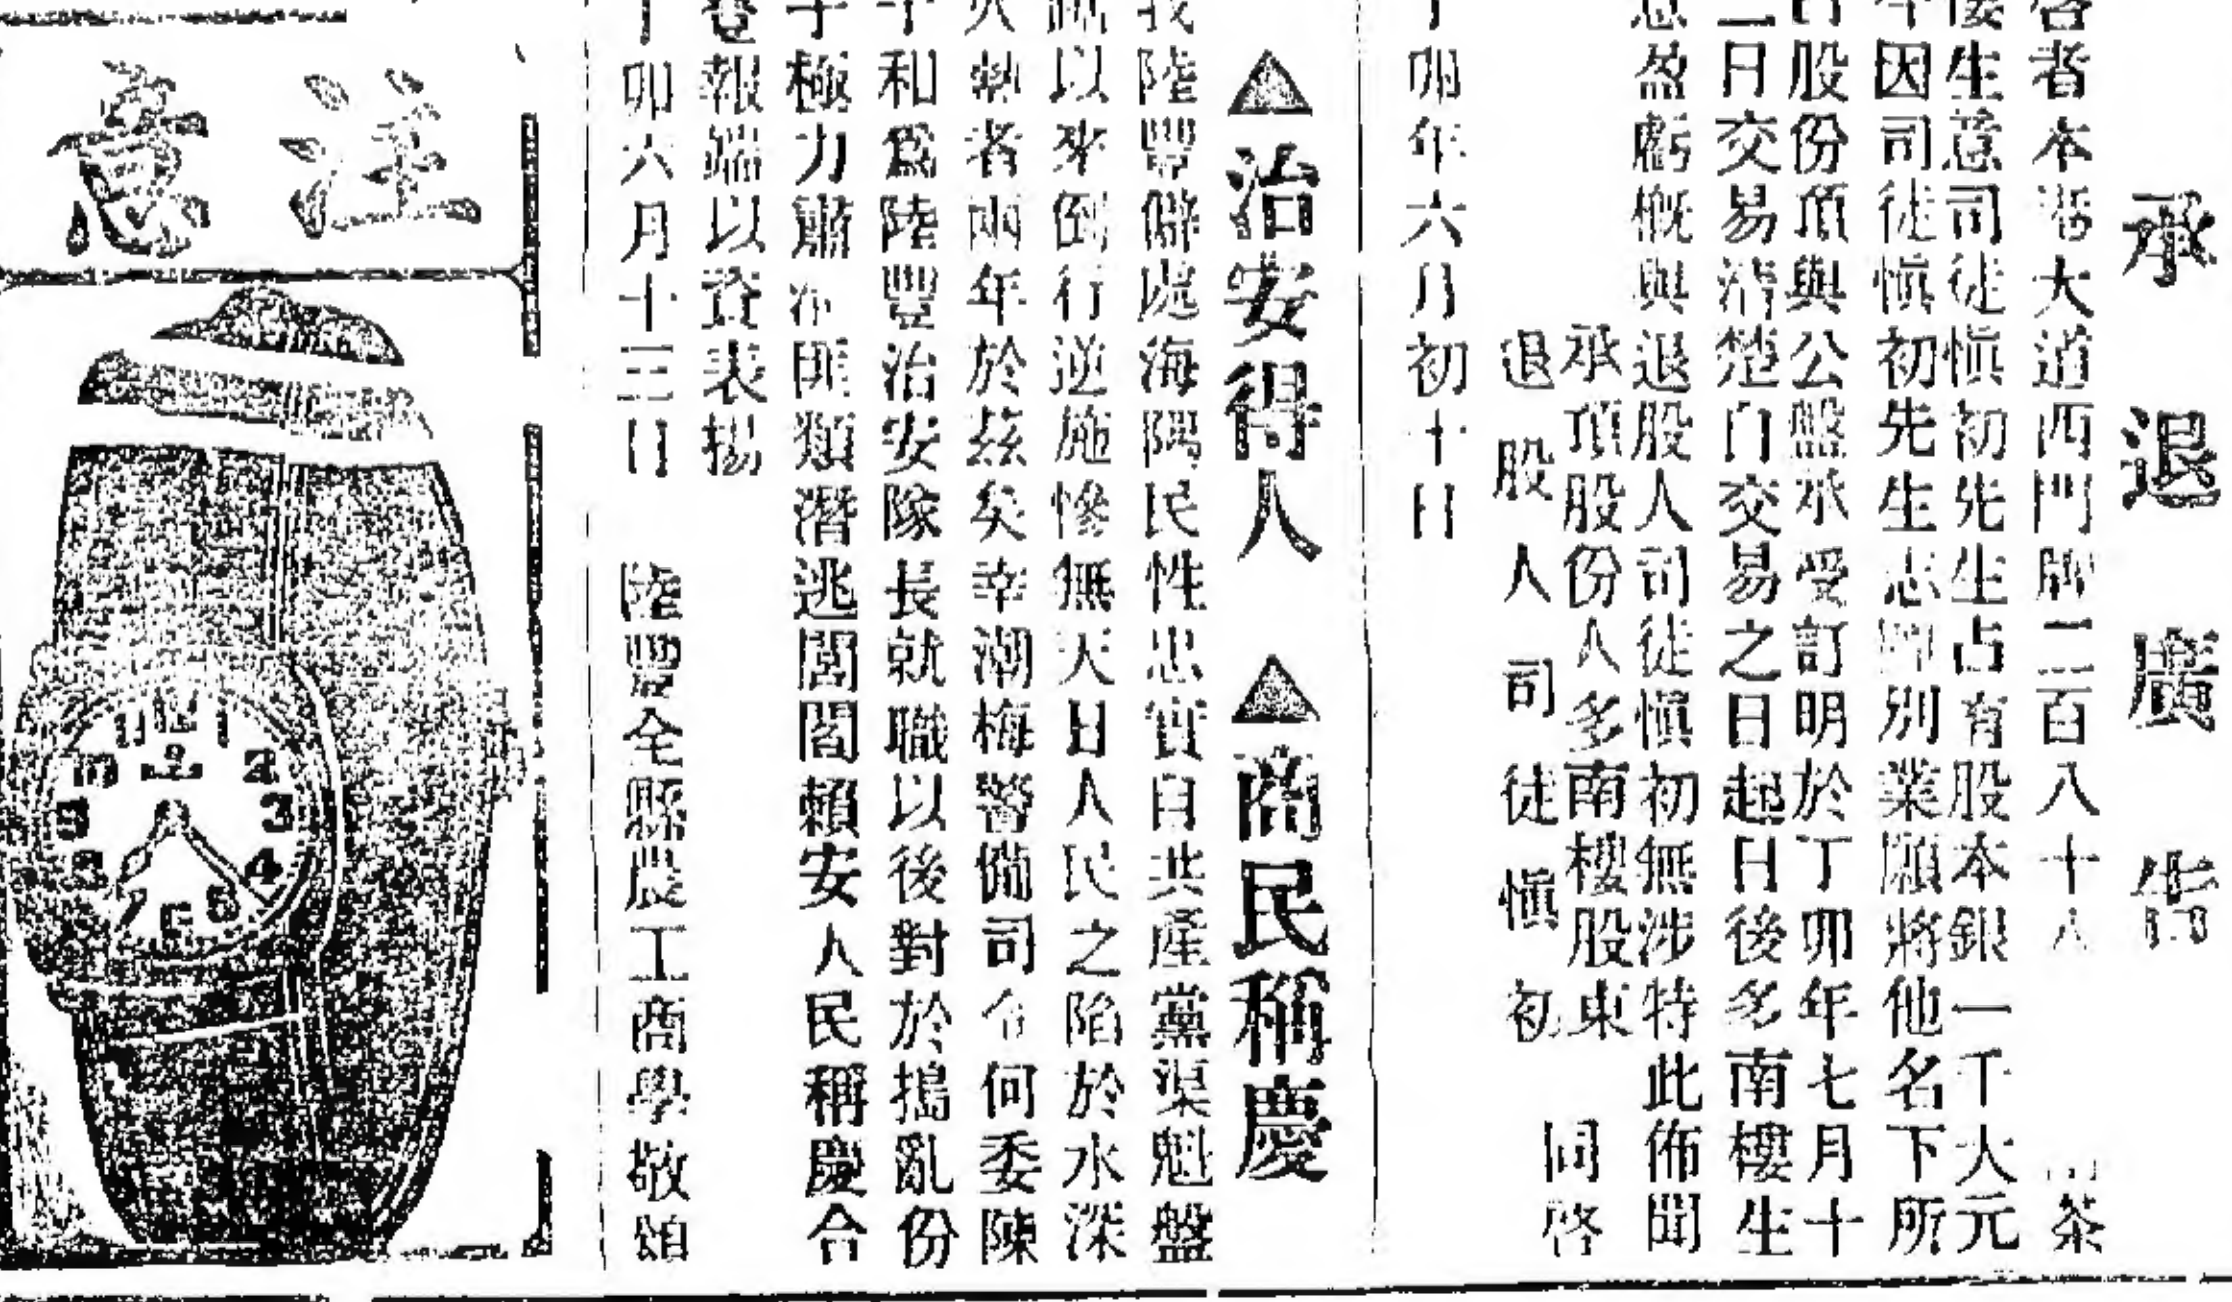 承退廣告
啓者本港大道西門牌二百八十八 茶
樓生意司徒愼初先生占有股本銀一千大元
今因司徒愼初先生志 別業願將他名下所
股份頂與公盤承受訂明於丁卯年七月十
二日交易淸楚自交易之日起日後多南樓生
意盈虧槪與退股人司徒愼初無涉特此佈聞
承頂股份人多南樓股東
退股人司徒愼初
同啓
丁卯年六月初十日
▲治安得人 ▲商民稱慶
我陸豐僻處海隅民性忠實自共產黨渠魁盤
踞以來倒行逆施慘無天日人民之陷於水深
火熱者兩年於茲矣幸潮梅警備司令何委陳
子和爲陸豐治安隊長就職以後對於搗亂份
子極力肅 匪類潛逃閭閻賴安人民稱慶合
登報端以資表揚
丁卯六月十三日 陸豐全縣農工商學敬頌
注意